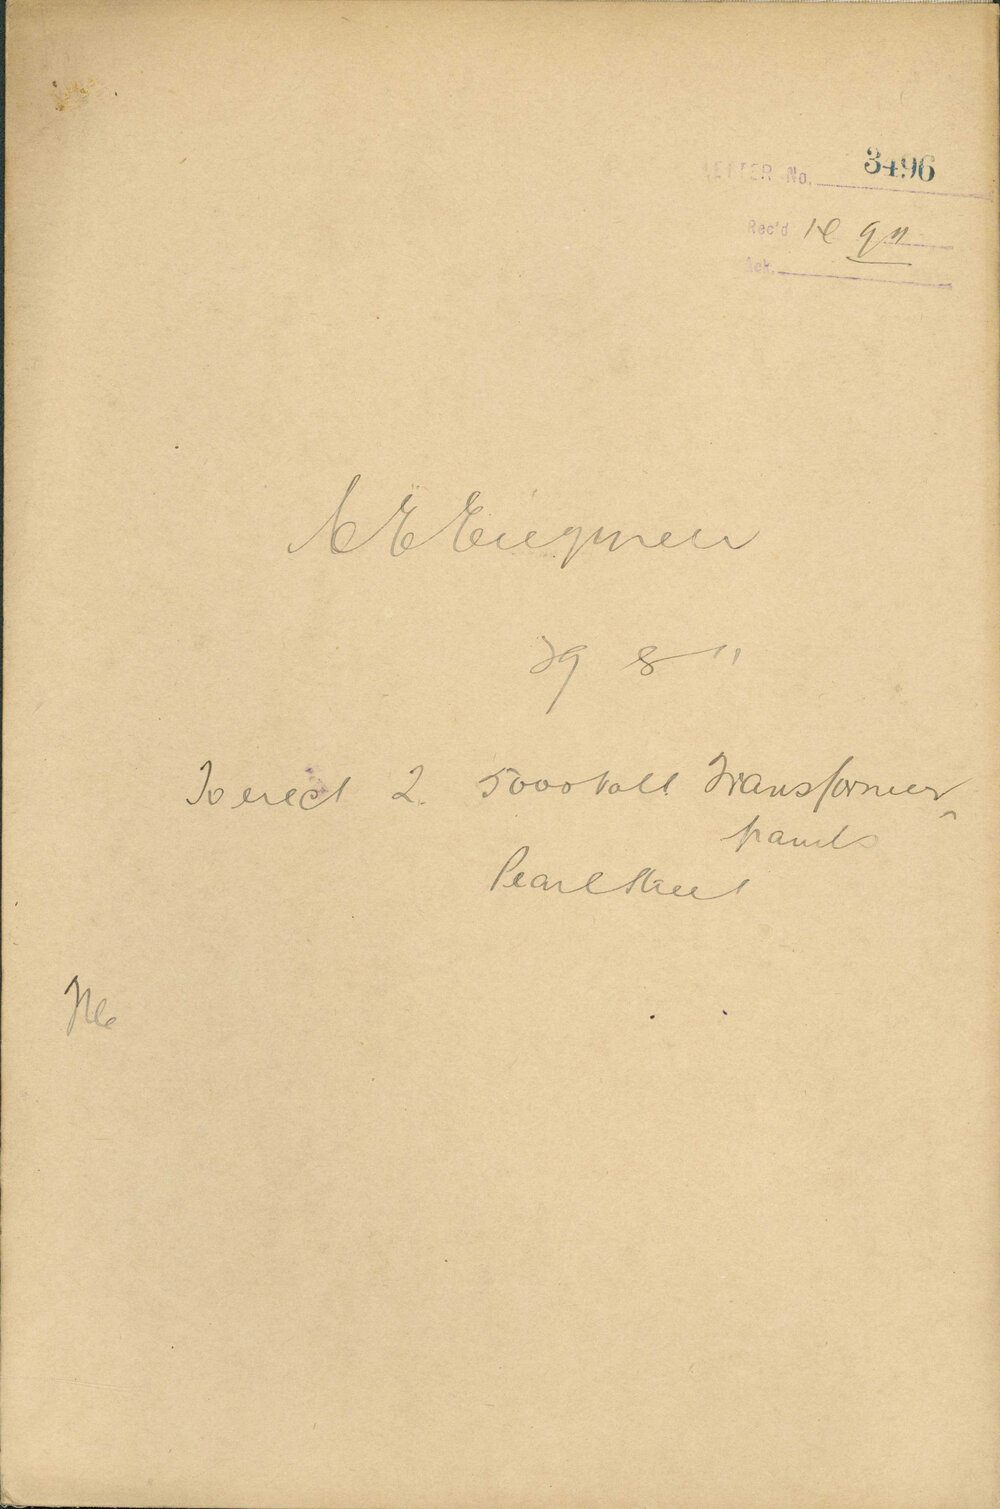 LETTER No. 3496
Rec'd 9 11
Ack.
C E Engineer
29 8 11
To erect 2 5000 Volt Transformer
panels
Pearl Street